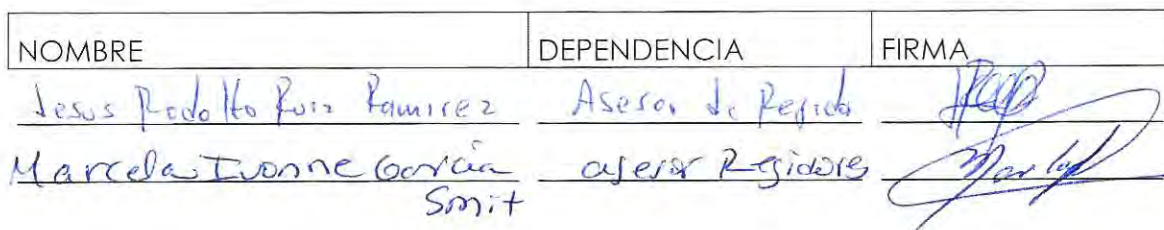 NOMBRE DEPENDENCIA FIRMA
Jesus Rodolfo Ruiz Ramirez Asesor de Regidor
Marcela Ivonne García asesor Regidores
Smit